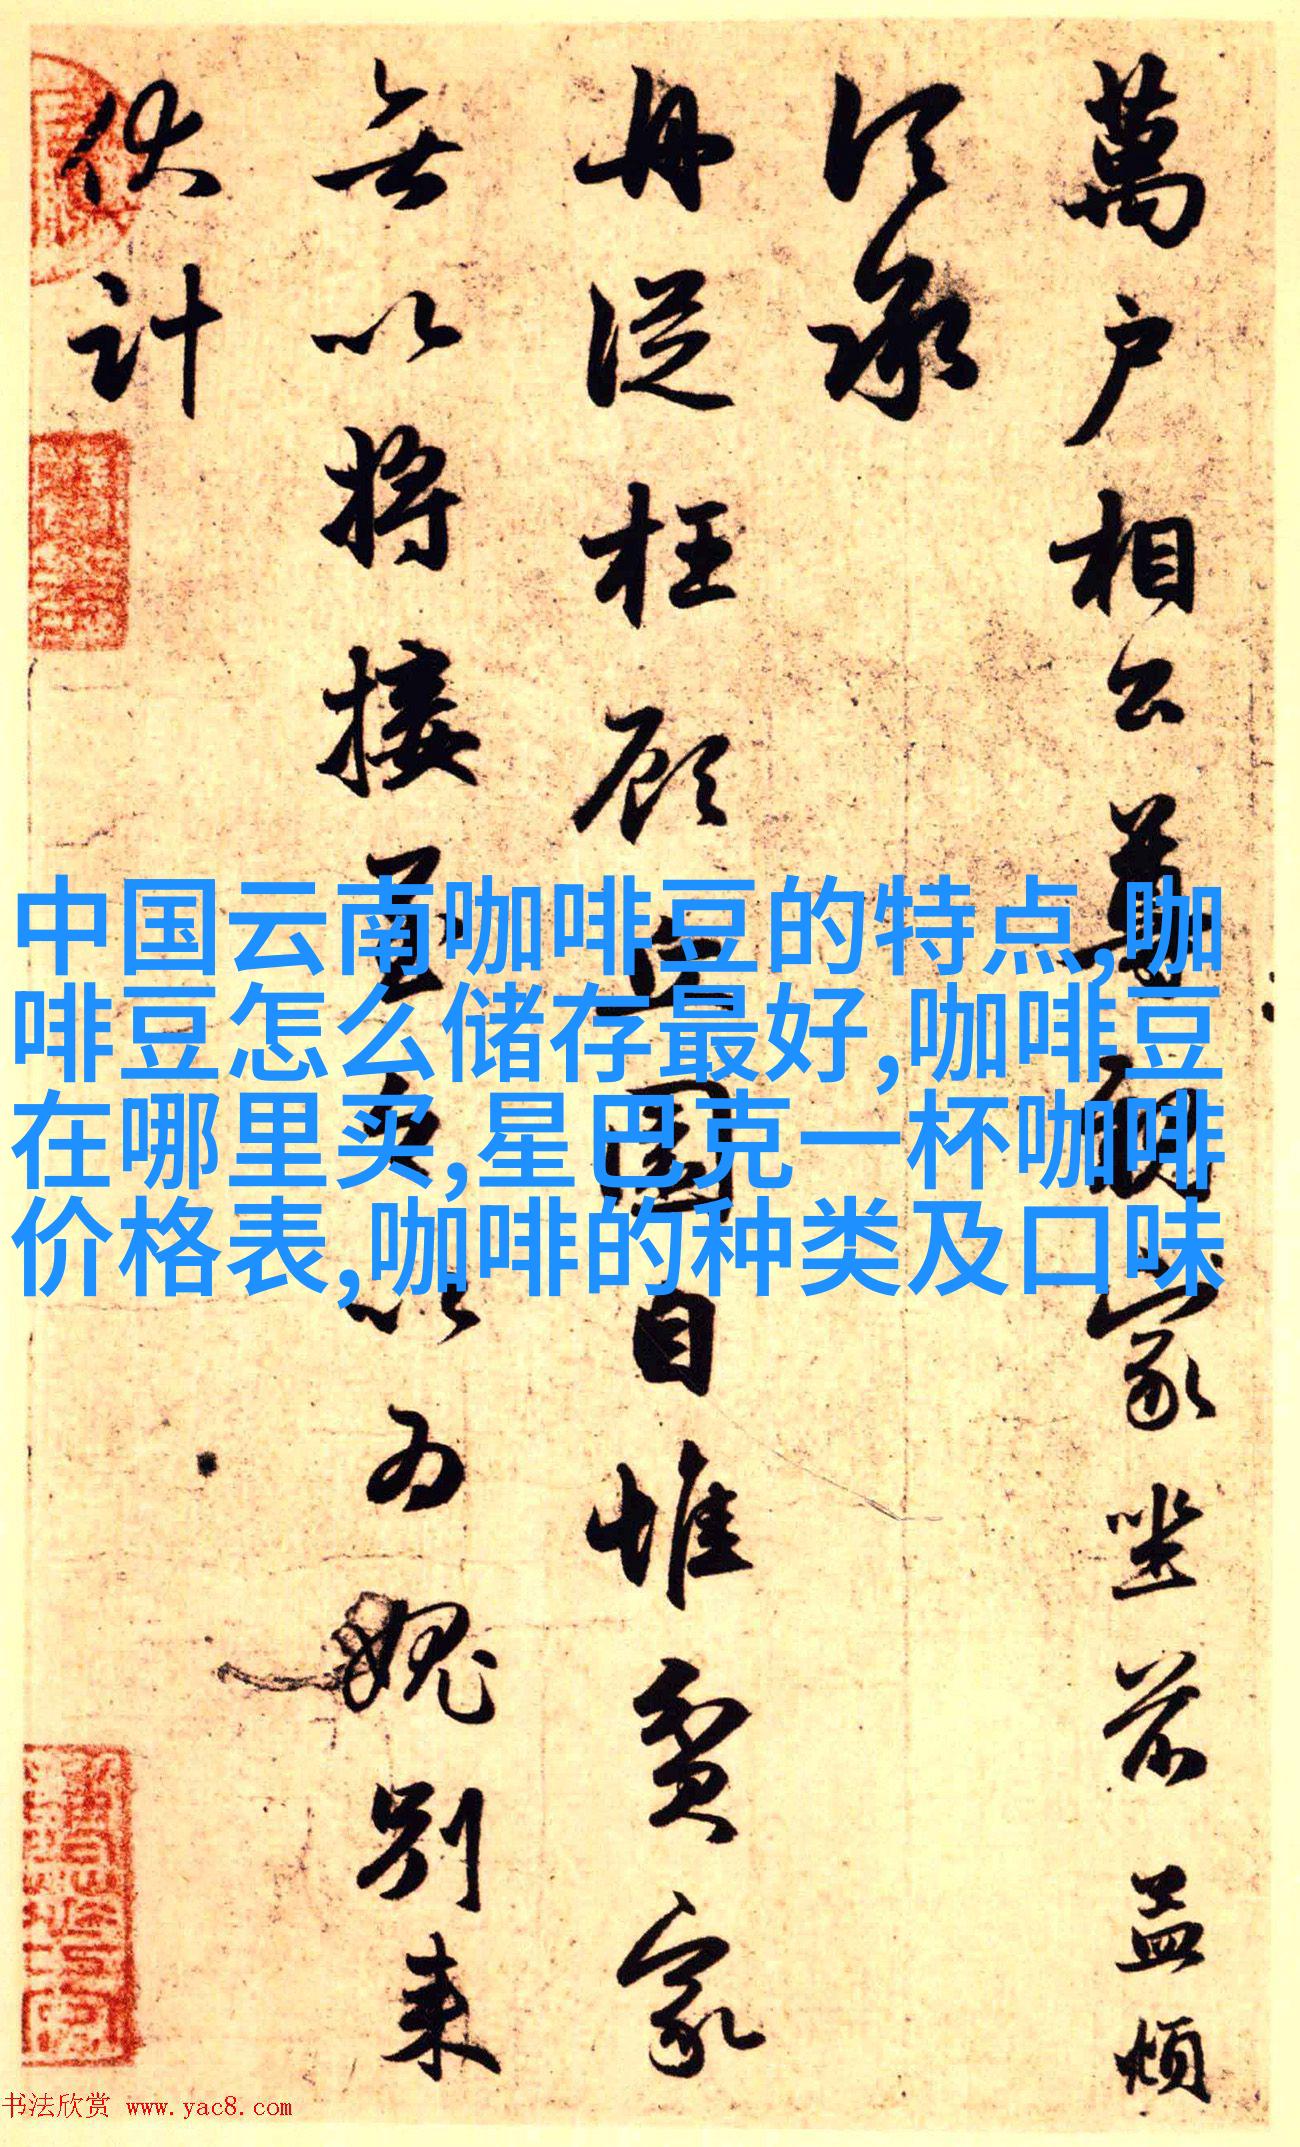 萬户相公尊親家坐前益煩
須承
冉從枉顧
園自惟貧家
無以將接
以为愧别来
伏計
中国云南咖啡豆的特点,咖
啡豆怎么储存最好,咖啡豆
在哪里买,星巴克一杯咖啡
价格表,咖啡的种类及口味
书法欣赏 www.yac8.com